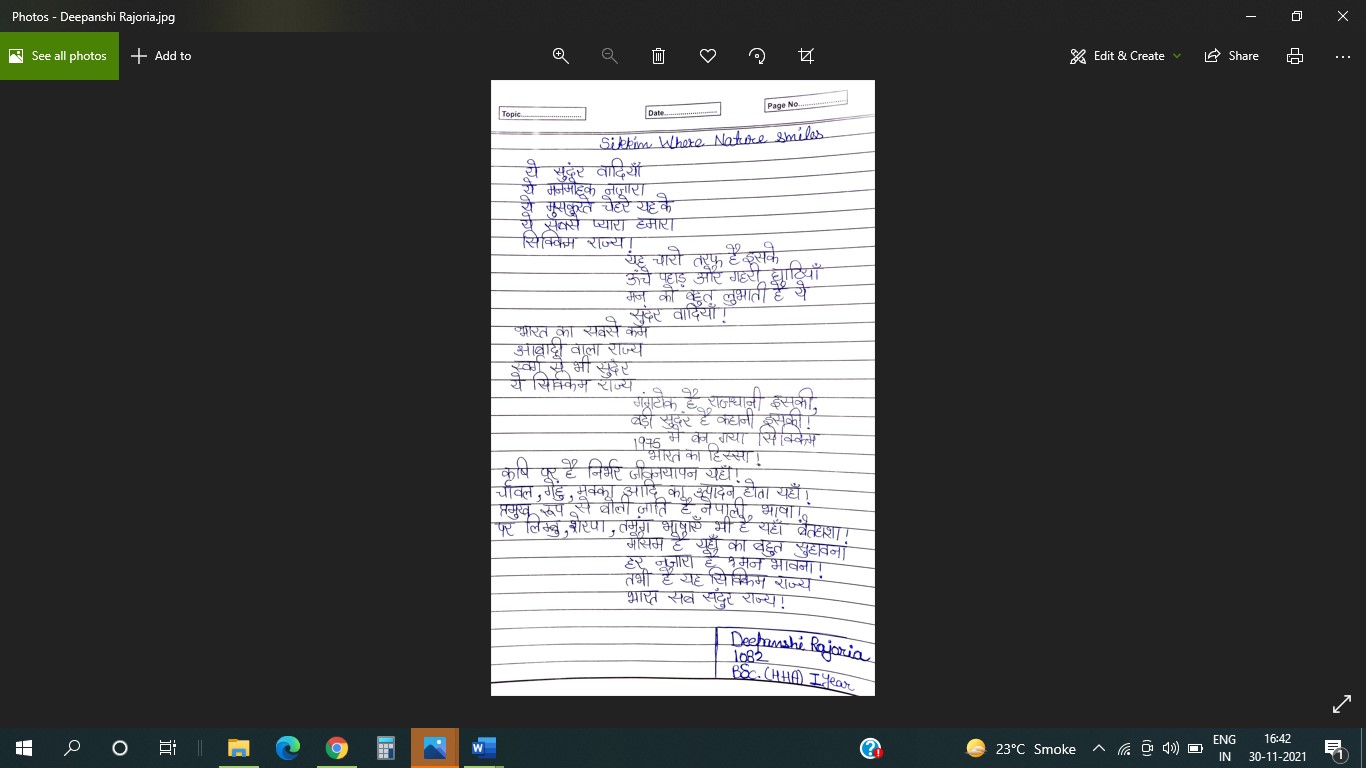 Photos - Deepanshi Rajoria.jpg
See all photos
Add to
Edit & Create
Share
Topic
Date
Page No.
Sikkim Where Nature smiles
ये सुदंर वादियाँ
ये मनमोहक नज़ारा
ये मुसकुरते चेहरे यह के
ये सबसे प्यारा हमारा
सिक्किम राज्य!
यह चारो तरफ है इसके
ऊंचे पहाड़ और गहरी घाटियाँ
मन को बहुत लुभाती है ये
सुदंर वादियाँ!
भारत का सबसे कम
आबादी वाला राज्य
स्वर्ग से भी सुदंर
ये सिक्किम राज्य
गंगटोक है राजधानी इसकी,
बड़ी सुदंर है कहानी इसकी!
1975 में बन गया सिक्किम
भारत का हिस्सा!
कृषि पर है निर्भर जीवनयापन यहाँ!
चावल, गेहु, मक्का आदि का होता यहाँ!
प्रमुख रूप से बोली जाति है नेपाली भाषा!
पर लिम्बु, शेरपा, तमंग भाषाएँ भी है यहाँ बेतहाशा!
मौसम है यहाँ का बहुत सुहावना
हर नज़ारा है मन भावना!
तभी है यह सिक्किम राज्य
भारत सब संदुर राज्य!
Deepanshi Rajoria
1082
BSc. (HHA) I Year
23°C Smoke
ENG
IN
16:42
30-11-2021
1